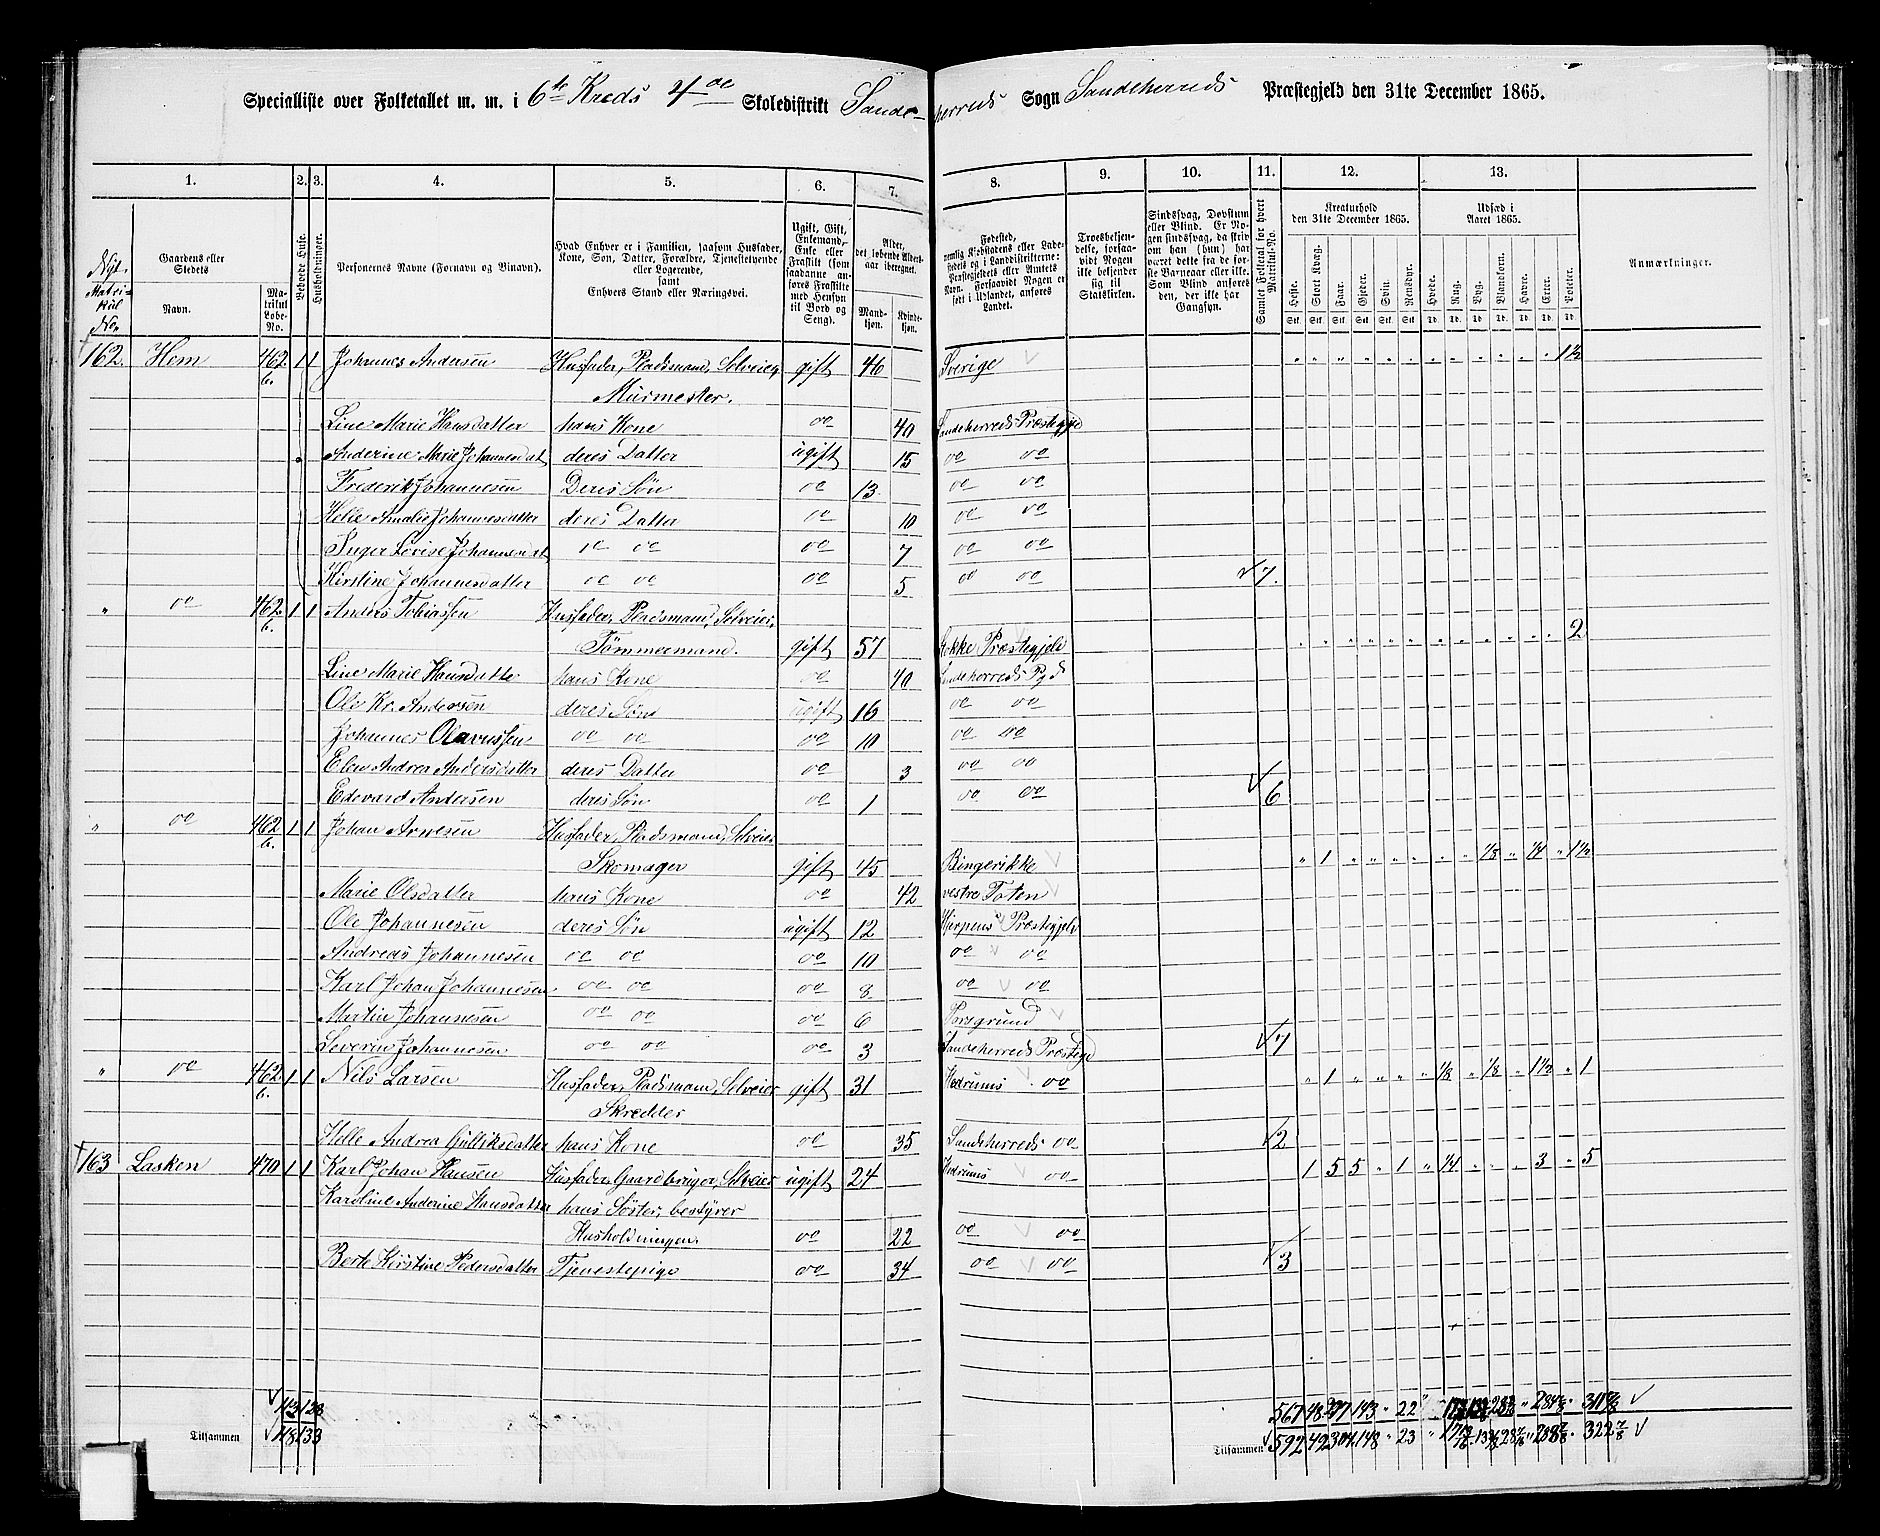 Specialliste over Folketallet m. m. i 6te Kreds 4de Skoledistrikt Sandeherreds Sogn Sandeherreds Præstegjeld den 31te December 1865.
1. 2. 3. 4. 5. 6. 7. 8. 9. 10. 11. 12. 13.
Nyt Matrikul No.
Gaardens eller Stedets
Navn.
Matrikul Løbe-No.
Beboede Huse.
Husholdninger.
Personernes Navne (Fornavn og Binavn).
Hvad Enhver er i Familien, saasom Husfader, Kone, Søn, Datter, Forældre, Tjenestetyende eller Logerende, samt Enhvers Stand eller Næringsvei.
Ugift, Gift, Enkemand, Enke eller Fraskilt (som saadanne anføres Fraskilte med Hensyn til Bord og Seng).
Alder, det løbende Alders-aar iberegnet.
Mandkjøn.
Kvindekjøn.
Fødested,
Troesbekjendelse, forsaavidt Nogen ikke bekjender sig til Statskirken.
Sindssvag, Døvstum eller Blind. Er Nogen sindssvag, da skrives om han (hun) har været dette fra de første Barneaar eller ikke. Som Blind anføres den, der ikke har Gangsyn.
Samlet Folketal for hvert Matrikul-No.
Kreaturhold den 31te December 1865.
Udsæd i Aaret 1865.
Anmærkninger.
Heste. Stort Kvæg. Faar. Gjeder. Svin. Rensdyr. Hvede. Rug. Byg. Blandkorn. Havre. Erter. Poteter.
162. Hem 462. b. 1 1 Johannes Andersen Husfader, Pladsmand, Selveier gift 46 Sverige " " " " " " " " " " " " 1½
Murmester.
Line Marie Hansdatter hans Kone do 40 Sandeherreds Præstegjeld
Anderine Marie Johannesdat deres Datter ugift 15 do do
Frederik Johannesen Deres Søn do 13 do do
Helle Amalie Johannesdatter deres Datter do 10 do do
Inger Lovise Johannesdat do do do 7 do do
Kirstine Johannesdatter do do do 5 do do 7.
" do 462. b. 1 1 Anders Tobiassen Husfader, Pladsmand, Selveier,
Tømmermand. gift 57 Præstegjeld " " " " " " " " " " " " 2
Line Marie Hansdatter hans Kone do 40 Sandeherreds Pgd
Ole Kr. Andersen deres Søn ugift 16 do do
Johannes Olavussen do do do 10 do do
Elen Andrea Andersdatter deres Datter do 3 do do
Edevard Andersen deres Søn do 1 do do 6
" do 462 b. 1 1 Johan Arnesen Husfader, Pladsmand, Selveier
Skomager gift 45 Ringerikke " 1 " " " " " " ⅛ " ¼ " 1½
Marie Olsdatter hans Kone do 42 vestre Toten
Ole Johannesen deres Søn ugift 12 Præstegjeld
Andreas Johannesen do do do 10 do do
Karl Johan Johannesen do do do 8 do do
Martin Johannesen do do do 6 Porsgrund
Severin Johannesen do do do 3 Sandeherreds Præstegd 7
" do 462. b. 1 1 Nils Larsen Husfader, Pladsmand, Selveier gift 31 Hedrums do " 1 " " " " ⅛ " ⅛ " 1½ " 1
Skredder
Helle Andrea Gulliksdatter hans Kone do 35 Sandeherreds do 2
163 Lasken 470 1 1 Karl Johan Hansen Husfader, Gaardbruger, Selveier ugift 24 Hedrums do 1 5 5 " 1 " ¼ " " " 3 " 5
Karoline Anderine Hansdatter hans Søster, bestyrer
Husholdningen. do 22 do do
Berte Kirstine Pedersdatter Tjenestepige do 34 do do 3
113 128 567
Tilsammen 118 133 Tilsammen 592